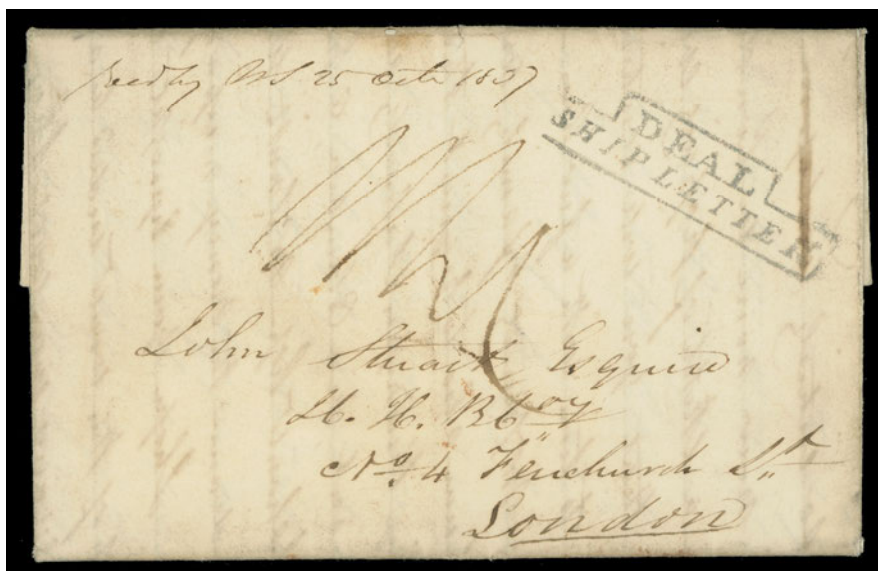 25 Octr 1837
DEAL
SHIP LETTER
John Stuart Esquire
H. H. B. Coy
No. 4 Fenchurch St.
London